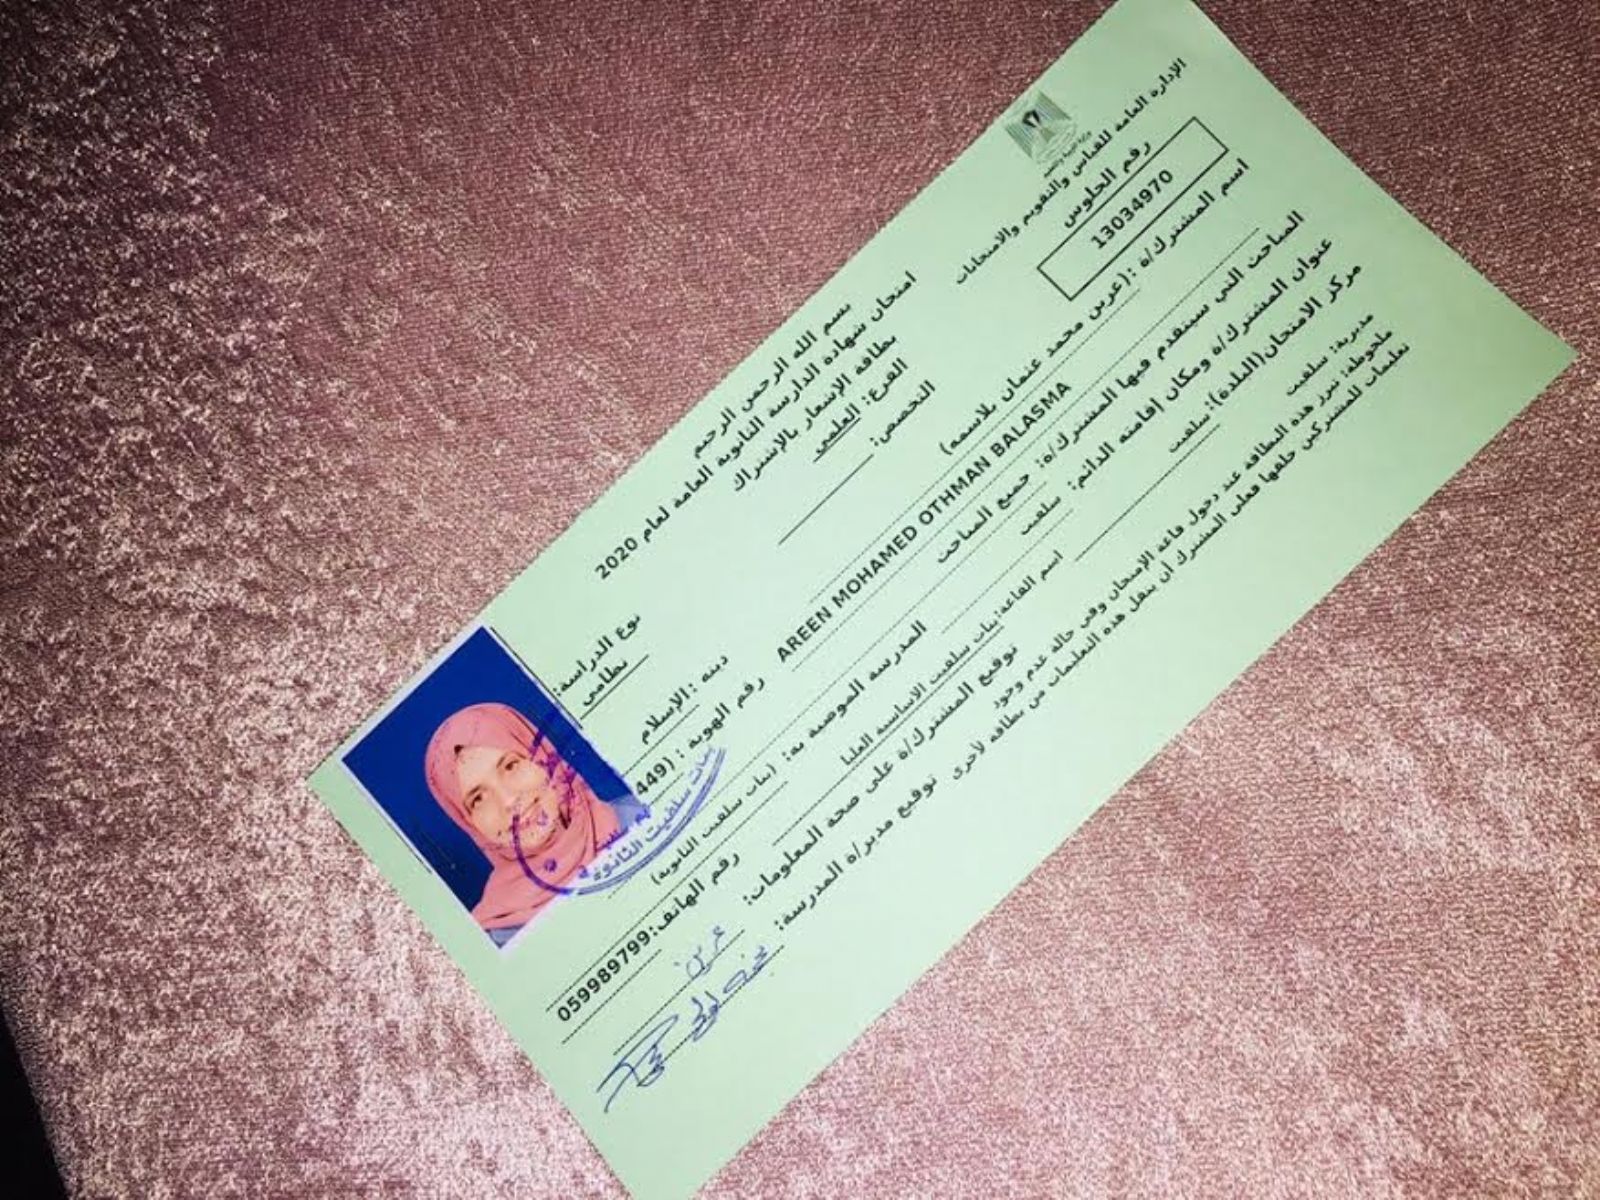 الإدارة العامة للقياس والتقويم والامتحانات
رقم الجلوس
13034970
بسم الله الرحمن الرحيم
امتحان شهادة الدارسة الثانوية العامة لعام 2020
بطاقة الإشعار بالإشتراك
الفرع: العلمي
التخصص:
نوع الدراسة:
نظامي
اسم المشترك/ة :(عرين محمد عثمان بلاسمه)
دينه : الإسلام
AREEN MOHAMED OTHMAN BALASMA
رقم الهوية : (449
المباحث التي سيتقدم فيها المشترك/ة: جميع المباحث
المدرسة الموصية به: (بنات سلفيت الثانوية)
عنوان المشترك/ة ومكان إقامته الدائم: سلفيت
رقم الهاتف:059989799
مركز الامتحان(البلدة): سلفيت
اسم القاعة: بنات سلفيت الاساسية العليا
توقيع المشترك/ة على صحة المعلومات: عرين
مديرية: سلفيت
توقيع مدير/ة المدرسة:
ملحوظة: تبرز هذه البطاقة عند دخول قاعة الإمتحان وفي حالة عدم وجود
تعليمات للمشتركين خلفها فعلى المشترك أن ينقل هذه التعليمات من بطاقة لأخرى
بنات سلفيت الثانوية